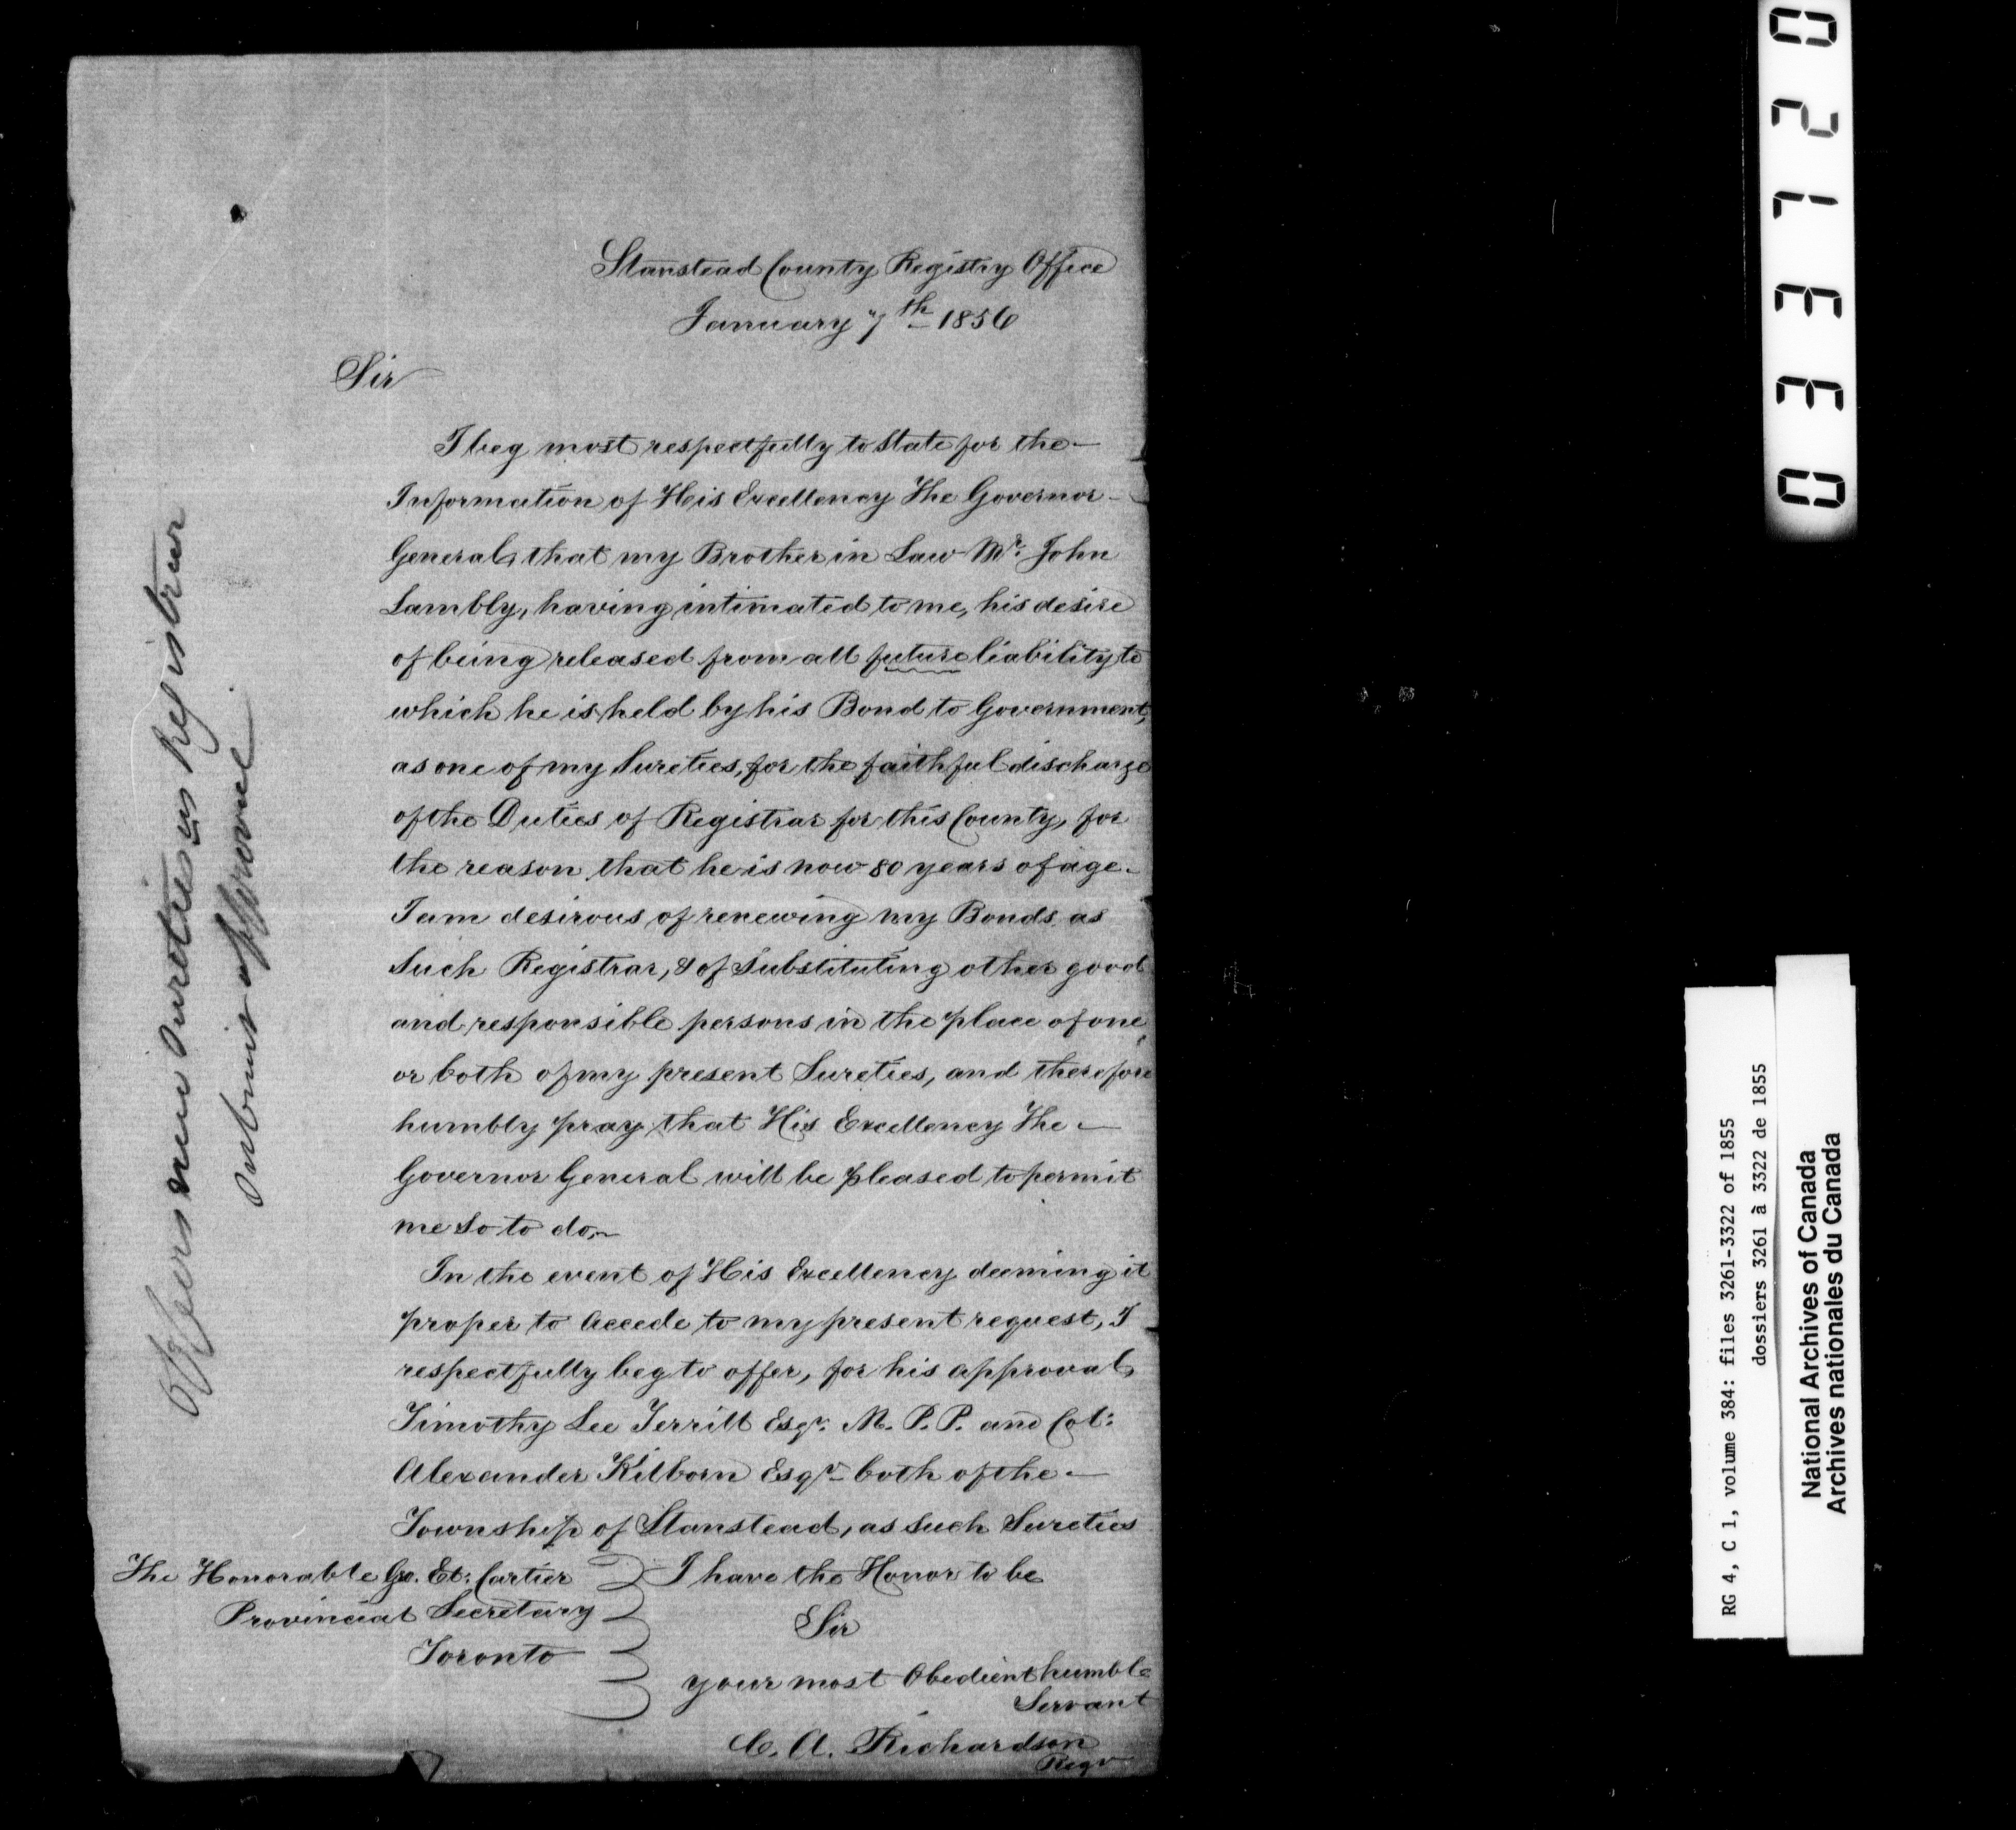 Stanstead County Registry Office
January 7th 1856
Sir
I beg most respectfully to State for the
Information of His Excellency The Governor
General, that my Brother in Law Mr. John
Lambly, having intimated to me, his desire
of being released from all future liability to
which he is held by his Bond to Government,
as one of my Sureties, for the faithful discharge
of the Duties of Registrar for this County, for
the reason that he is now 80 years of age.
I am desirous of renewing my Bonds as
Such Registrar, & of Substituting other good
and responsible persons in the place of one
or both of my present Sureties, and therefore
humbly pray that His Excellency The
Governor General will be pleased to permit
me So to do,
In the event of His Excellency deeming it
proper to Accede to my present request, I
respectfully beg to offer, for his approval,
Timothy Lee Terrill Esqr. M. P. P. and Col:
Alexander Kilborn Esqr both of the
Township of Stanstead, as Such Sureties
I have the Honor to be
Sir
your most Obedient humble
Servant
C. A. Richardson
Regr
The Honorable Go. Et: Cartier
Provincial Secretary
Toronto
Offers new Sureties as Registrar
Submit approval
033120
RG 4, C 1, volume 384: files 3261-3322 of 1855
dossiers 3261 à 3322 de 1855
National Archives of Canada
Archives nationales du Canada